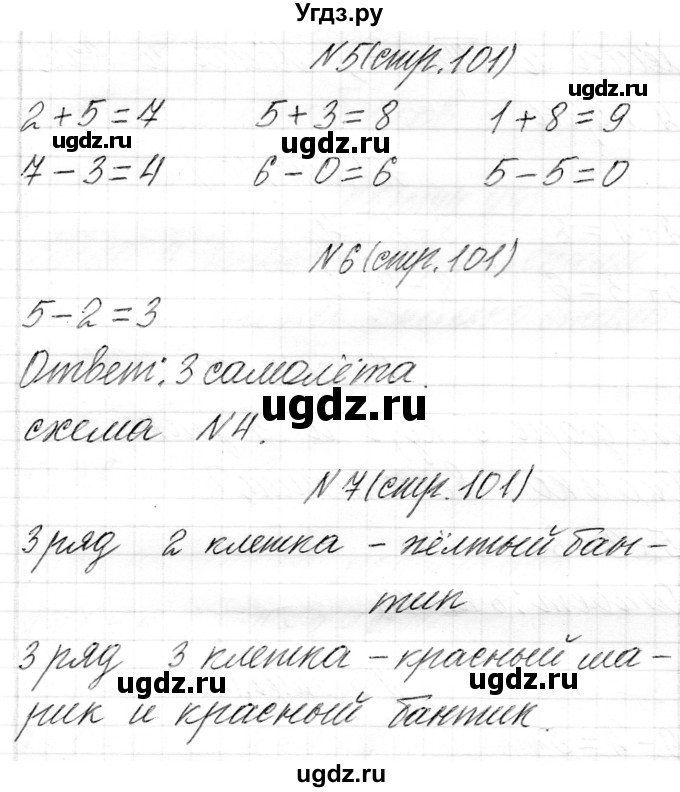 Угдз.ру
N5(стр.101)
ugdz.ru
2+5=7 5+3=8 1+8=9
ugdz.ru ugdz.ru
7-3=4 6-0=6 5-5=0
N6(стр.101)
5-2=3
Ответ: 3 самолёта.
ugdz.ru
схема N4.
N7(стр.101)
3 ряд 2 клетка - жёлтый бан-
тик
3 ряд 3 клетка - красный ша-
ugdz.ru ugdz.ru
рик и красный бантик.
ugdz.ru